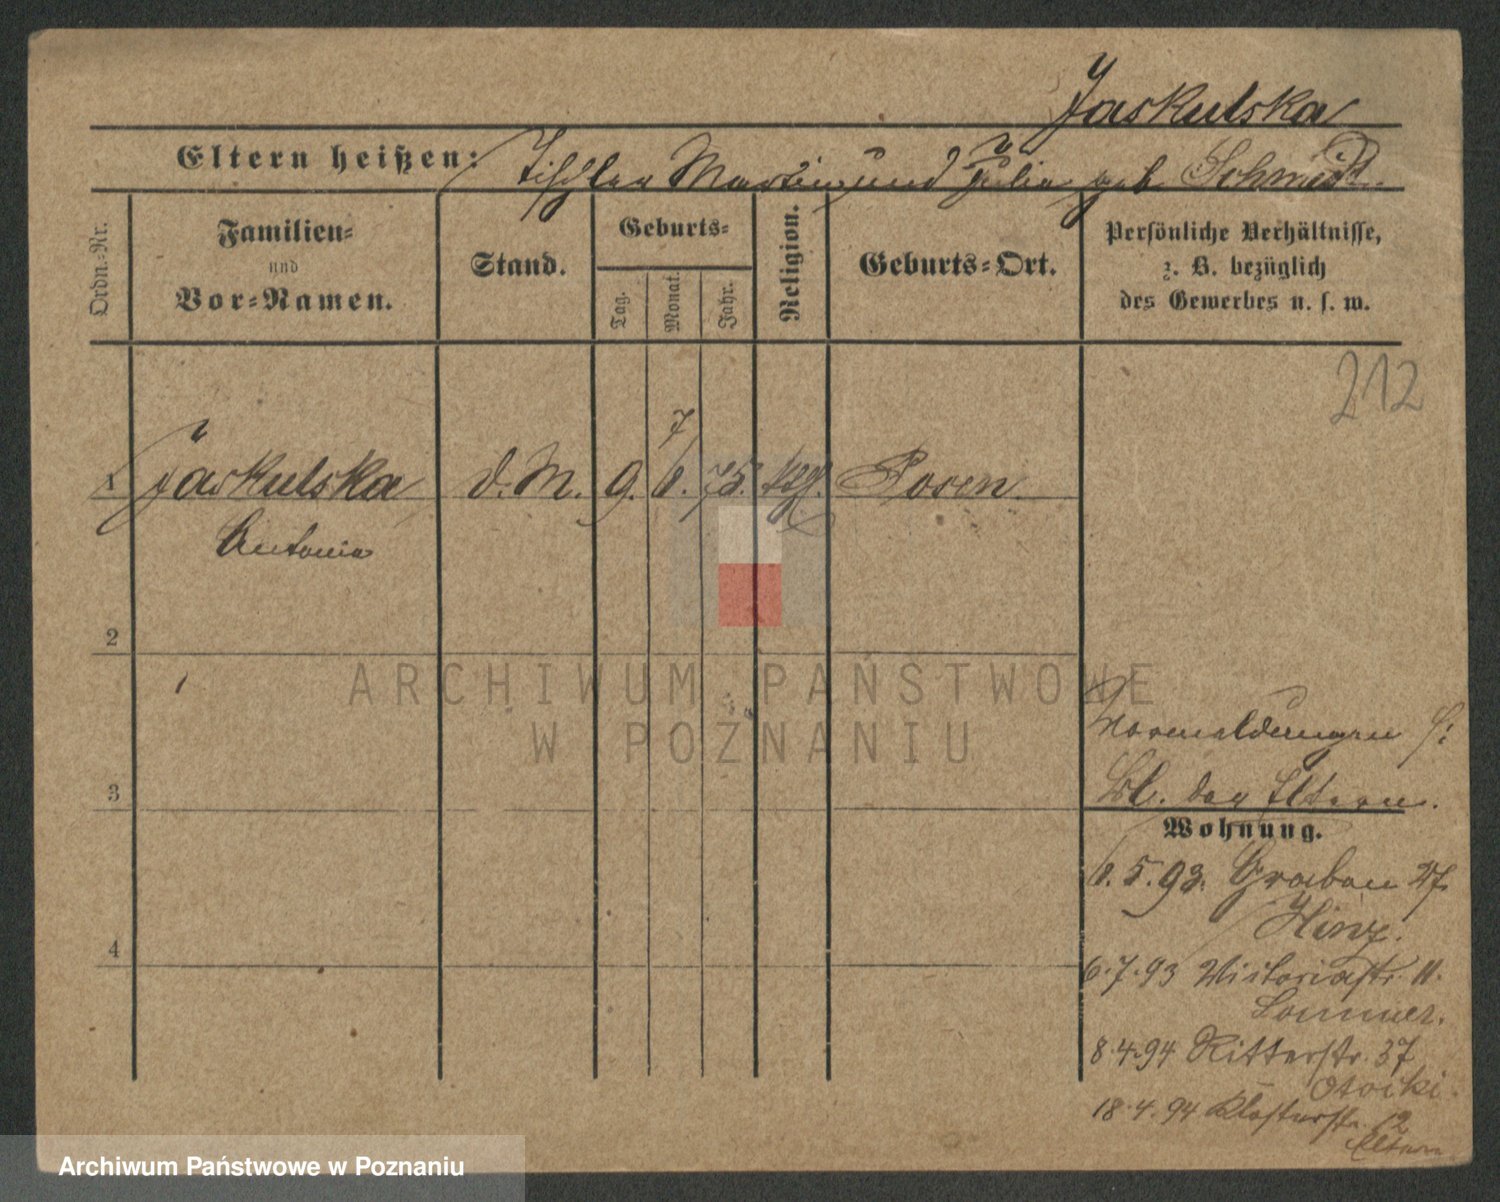 Jaskulska
Eltern heißen: Tischler Martin und Julia geb. Schmidt.
Ordn.-Nr.
Familien-
und
Vor-Namen.
Stand.
Geburts-
Tag.
Monat.
Jahr.
Religion.
Geburts-Ort.
Persönliche Verhältnisse,
z. B. bezüglich
des Gewerbes u. s. w.
212
7
1 Jaskulska d. M. 9. 6. 75. Posen.
Antonia
2
3
4
Vormeldungen s.
Bl. der Eltern.
Wohnung.
6.5.93. Graben 27.
Hinz.
6.7.93 Victoriastr. 11.
Sommer.
8.4.94 Ritterstr. 37
Otocki.
18.4.94 Klosterstr. 12
Eltern
ARCHIWUM PAŃSTWOWE
W POZNANIU
Archiwum Państwowe w Poznaniu